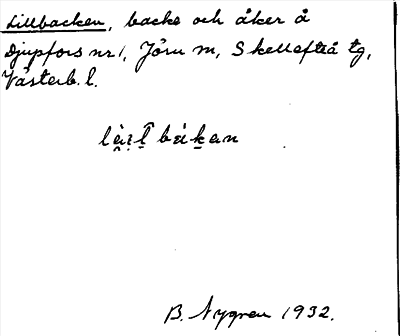 Lillbacken, backe och åker å
Djupfors nr 1, Jörn m, Skellefteå tg,
Västerb. l.
B. Nygren 1932.